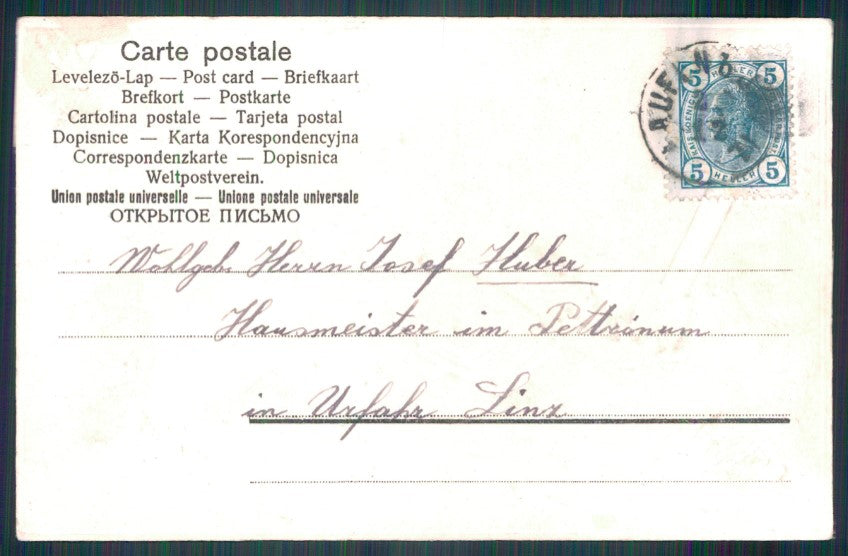 Carte postale
Levelezö-Lap — Post card — Briefkaart
Brefkort — Postkarte
Cartolina postale — Tarjeta postal
Dopisnice — Karta Korespondencyjna
Correspondenzkarte — Dopisnica
Weltpostverein.
Union postale universelle — Unione postale universale
ОТКРЫТОЕ ПИСЬМО
5 HELLER 5
5 HELLER 5
Wohlgeb. Herrn Josef Huber
Hausmeister im Pettrinum
in Urfahr Linz